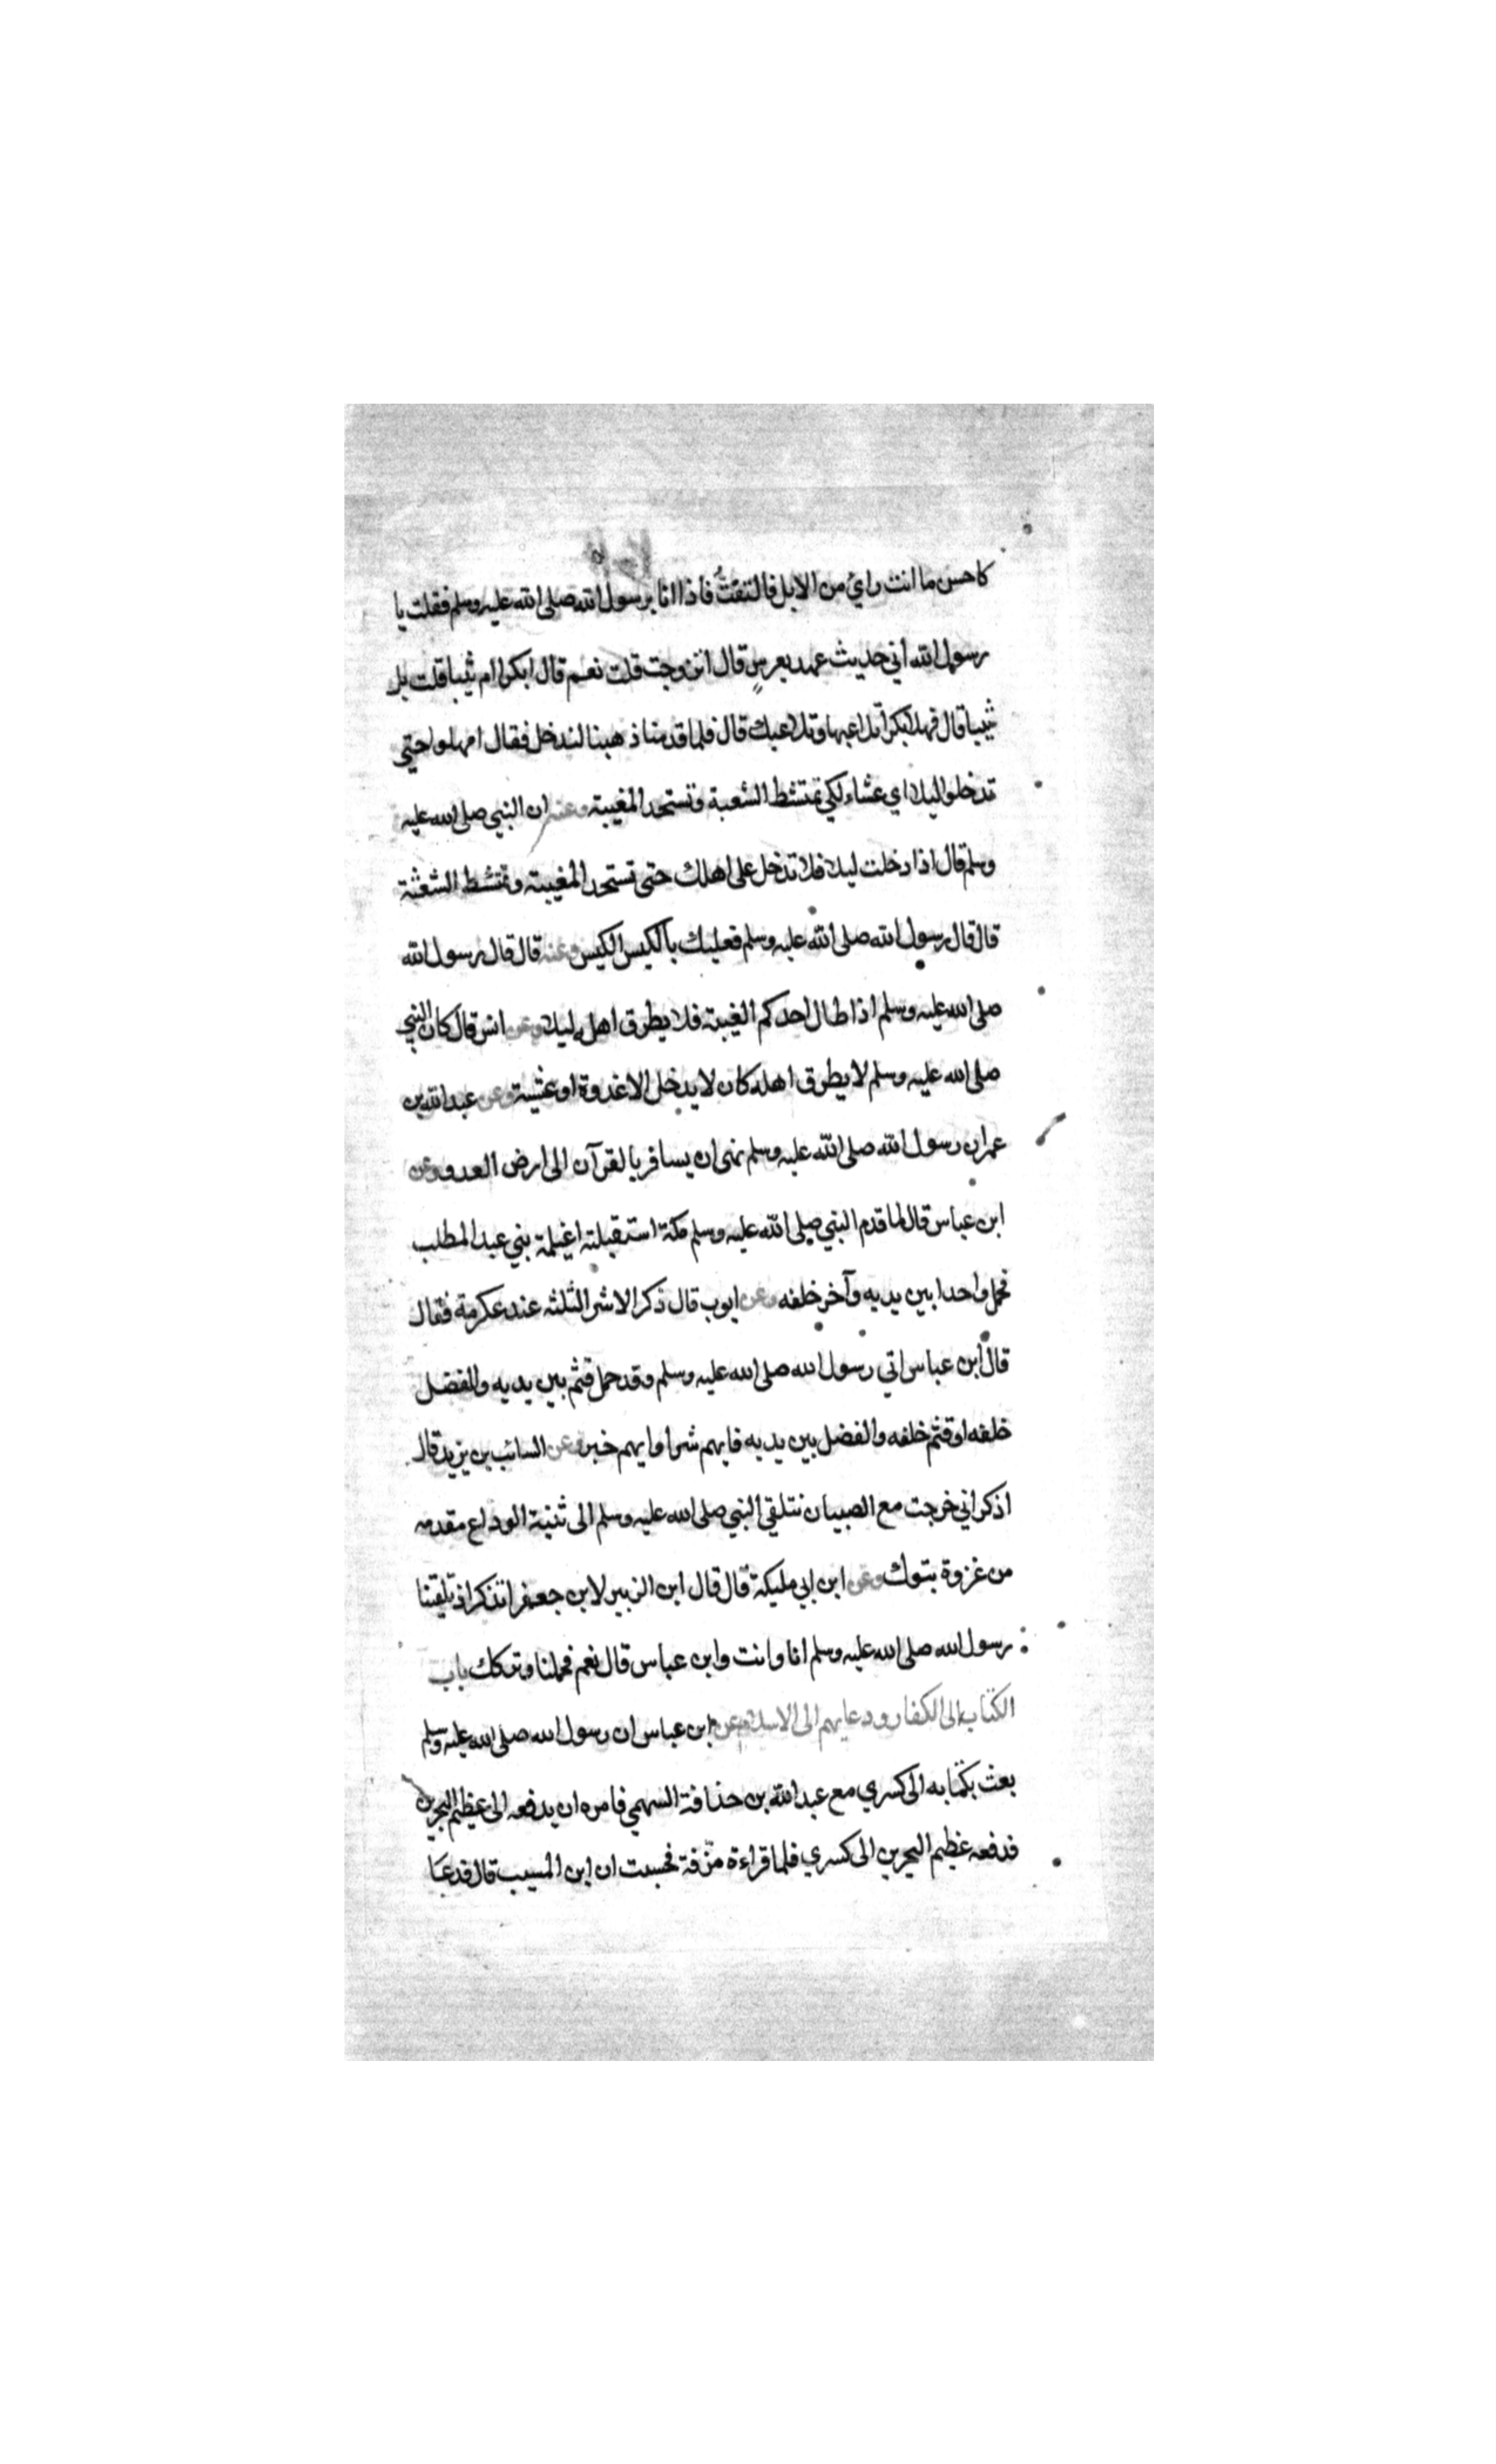 كاحسن ما انت رائ من الابل فالتفتُّ فاذا انا برسول الله صلى الله عليه وسلم فقلت يا
رسول الله اني حديث عهد بعرسٍ قال اتزوجت قلت نعم قال ابكرا ام ثيبا قلت بل
ثيبا قال فهلا بكرا تلاعبها وتلاعبك قال فلما قدمنا ذهبنا لندخل فقال امهلوا حتي
تدخلوا ليلا اي عشاء لكي تمتشط الشعبة وتستحد المغيبة وعنه ان النبي صلى الله عليه
وسلم قال اذا دخلت ليلا فلا تدخل على اهلك حتى تستحد المغيبة وتمتشط الشعثة
قال قال رسول الله صلى الله عليه وسلم فعليك بالكيس الكيس وعنه قال قال رسول الله
صلى الله عليه وسلم اذا طال احدكم الغيبة فلا يطرق اهله ليلا وعن انس قال كان النبي
صلى الله عليه وسلم لا يطرق اهله كان لا يدخل الا غدوة او عشية وعن عبد الله بن
عمر ان رسول الله صلى الله عليه وسلم نهى ان يسافر بالقرآن الى ارض العدو وعن
ابن عباس قال لما قدم النبي صلى الله عليه وسلم مكة استقبلته اغيلمة بني عبد المطلب
فحمل واحدا بين يديه وآخر خلفه وعن ايوب قال ذكر الاشر الثلثه عند عكرمة فقال
قال ابن عباس اتي رسول الله صلى الله عليه وسلم وقد حمل قثم بين يديه والفضل
خلفه او قثم خلفه والفضل بين يديه فايهم شر او ايهم خير وعن السائب بن يزيد قال
اذكر اني خرجت مع الصبيان نتلقي النبي صلى الله عليه وسلم الى ثنية الوداع مقدمه
من غزوة بتوك وعن ابن ابي مليكة قال قال ابن الزبير لابن جعفر اتذكر اذ تلقينا
رسول الله صلى الله عليه وسلم انا وانت وابن عباس قال نعم فحملنا وتركك باب
الكتاب الى الكفار ودعايهم الى الاسلام وعن ابن عباس ان رسول الله صلى الله عليه وسلم
بعث بكتابه الى كسري مع عبد الله بن حذافة السهمي فامره ان يدفعه الى عظيم البحرين
فدفعه عظيم البحرين الى كسري فلما قراءة مزّقة فحسبت ان ابن المسيب قال فدعا